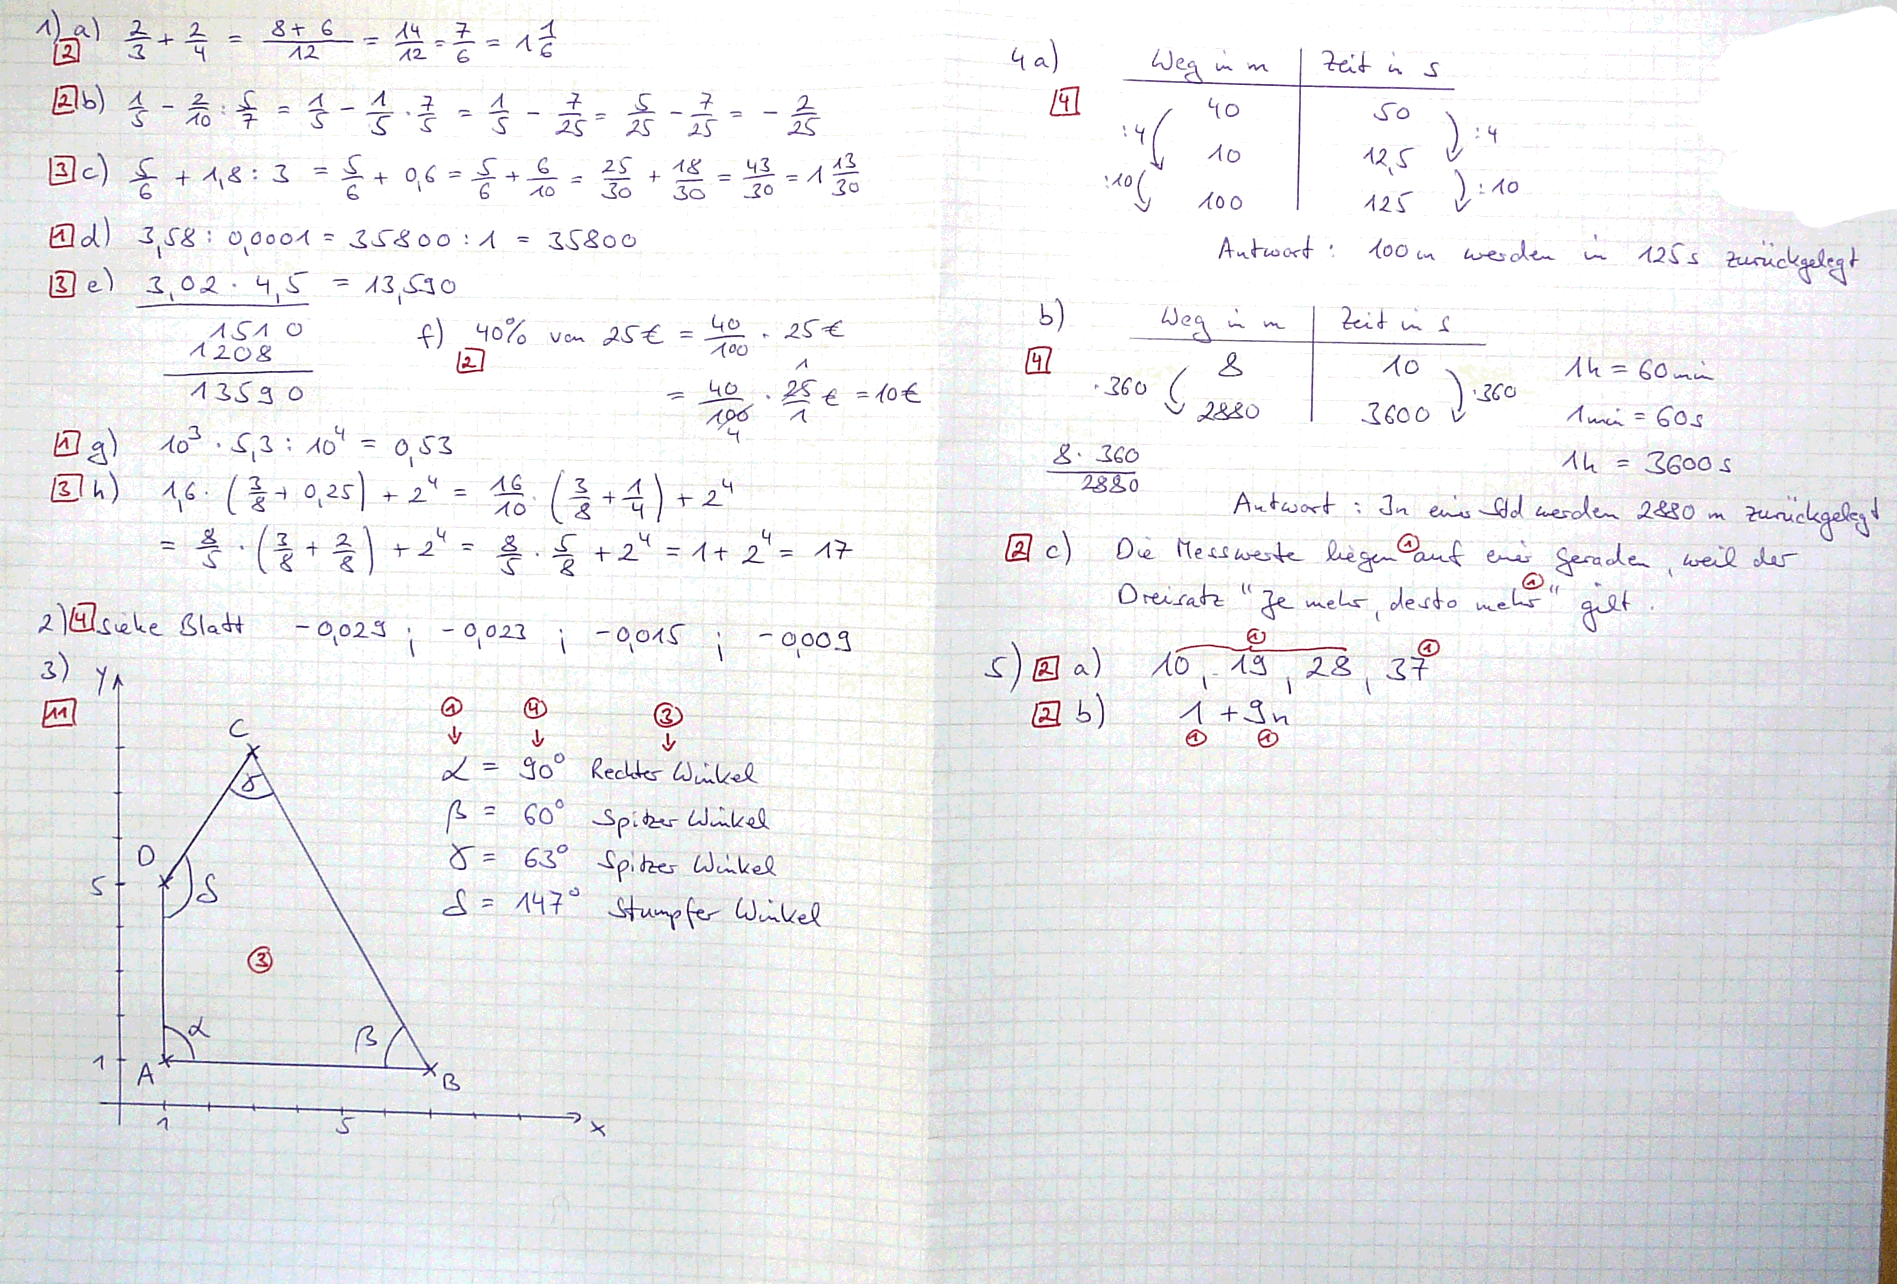 1) a) 2/3 + 2/4 = 8+6/12 = 14/12 = 7/6 = 1 1/6
2
2 b) 1/5 - 2/10 : 5/7 = 1/5 - 1/5 · 7/5 = 1/5 - 7/25 = 5/25 - 7/25 = - 2/25
3 c) 5/6 + 1,8 : 3 = 5/6 + 0,6 = 5/6 + 6/10 = 25/30 + 18/30 = 43/30 = 1 13/30
1 d) 3,58 : 0,0001 = 35800 : 1 = 35800
3 e) 3,02 · 4,5 = 13,590
1510
1208
13590
f) 40% von 25€ = 40/100 · 25€
2
= 40/100 · 25/1 € = 10€
1
4
1 g) 10³ · 5,3 : 10⁴ = 0,53
3 h) 1,6 · (3/8 + 0,25) + 2⁴ = 16/10 · (3/8 + 1/4) + 2⁴
= 8/5 · (3/8 + 2/8) + 2⁴ = 8/5 · 5/8 + 2⁴ = 1 + 2⁴ = 17
2) 4 siehe Blatt -0,029 ; -0,023 ; -0,015 ; -0,009
3)
11
y
C
γ
D
5
δ
3
α
β
1
A
B
1
5
x
1 4 3
α = 90° Rechter Winkel
β = 60° Spitzer Winkel
γ = 63° Spitzer Winkel
δ = 147° Stumpfer Winkel
4 a) Weg in m Zeit in s
4
40 50
:4 :4
10 12,5
:10 :10
100 125
Antwort : 100 m werden in 125 s zurückgelegt
b) Weg in m Zeit in s
4
8 10
·360 ·360
2880 3600
1h = 60min
1min = 60s
1h = 3600 s
8 · 360
2880
Antwort : In einer Std werden 2880 m zurückgelegt
2 c) Die Messwerte liegen 1 auf einer Geraden, weil der
Dreisatz "Je mehr, desto mehr" 1 gilt.
5) 2 a) 10, 19, 28, 37
1 1
2 b) 1 + 9n
1 1